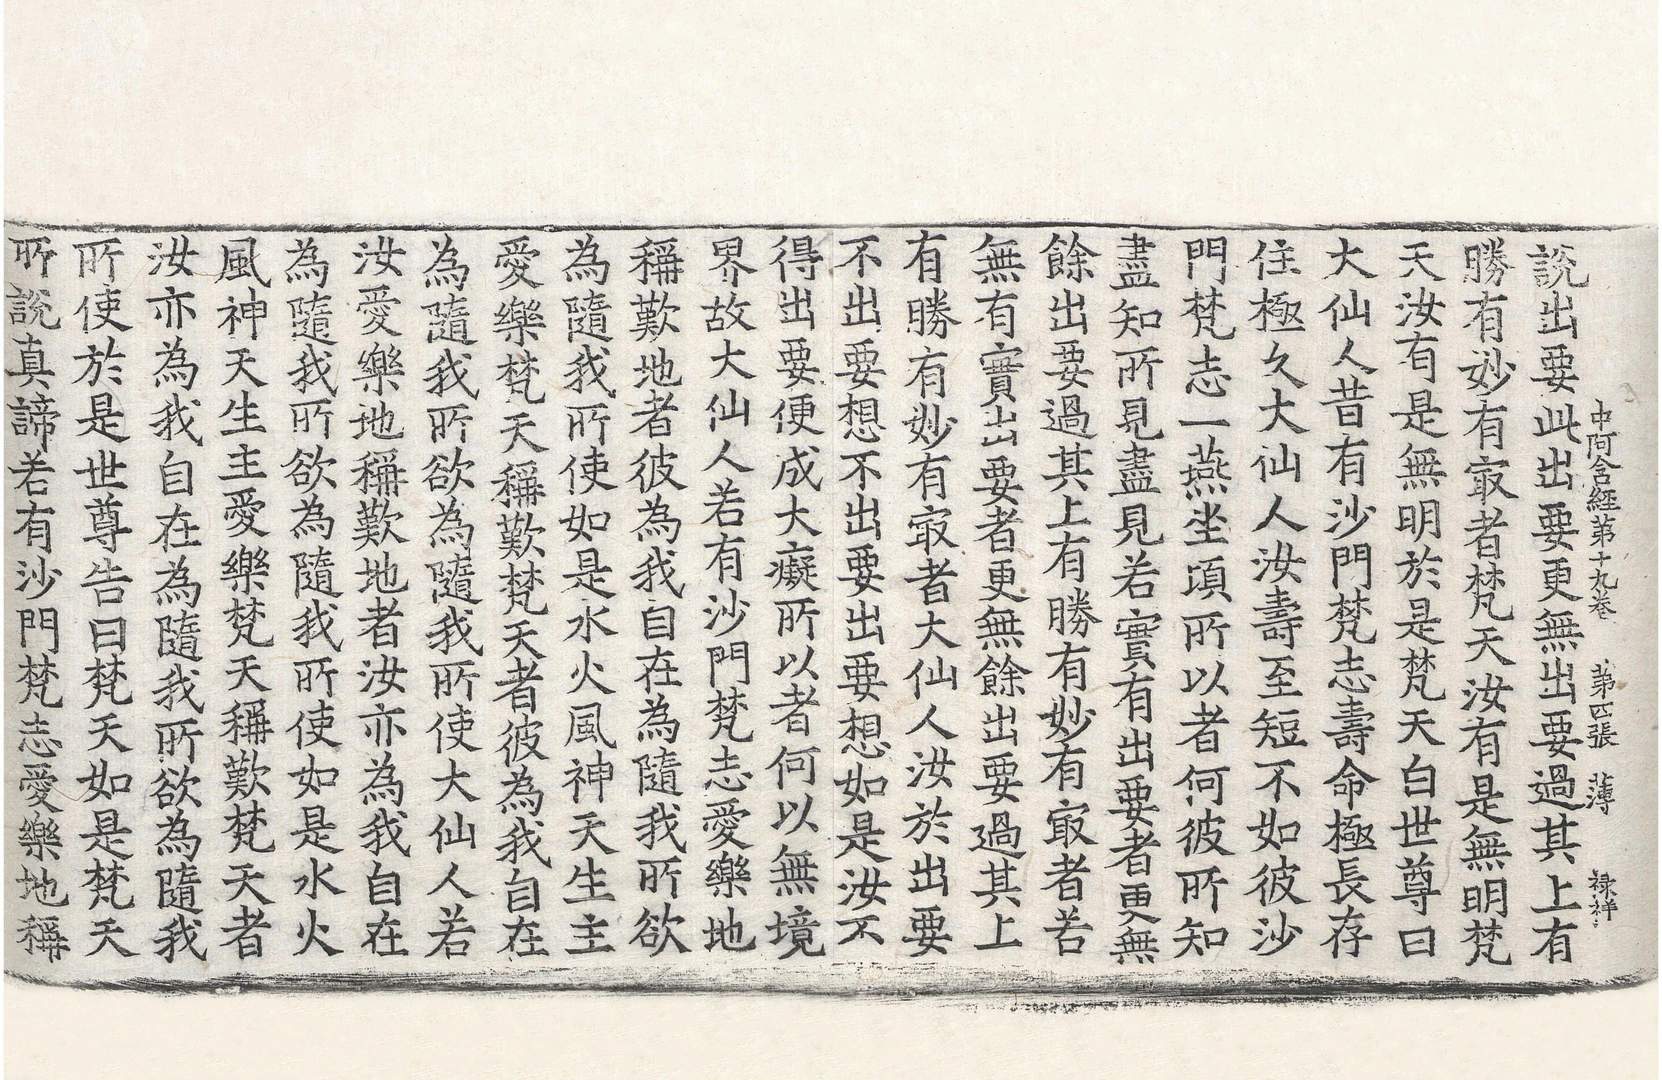 中阿含經第十九卷　第四張　薄　禄祥
說出要此出要更無出要過其上有
勝有妙有㝡者梵天汝有是無明梵
天汝有是無明於是梵天白世尊曰
大仙人昔有沙門梵志壽命極長存
住極久大仙人汝壽至短不如彼沙
門梵志一燕坐頃所以者何彼所知
盡知所見盡見若實有出要者更無
餘出要過其上有勝有妙有㝡者若
無有實出要者更無餘出要過其上
有勝有妙有㝡者大仙人汝於出要
不出要想不出要出要想如是汝不
得出要便成大癡所以者何以無境
界故大仙人若有沙門梵志愛樂地
稱歎地者彼為我自在為隨我所欲
為隨我所使如是水火風神天生主
愛樂梵天稱歎梵天者彼為我自在
為隨我所欲為隨我所使大仙人若
汝愛樂地稱歎地者汝亦為我自在
為隨我所欲為隨我所使如是水火
風神天生主愛樂梵天稱歎梵天者
汝亦為我自在為隨我所欲為隨我
所使於是世尊告曰梵天如是梵天
所說真諦若有沙門梵志愛樂地稱